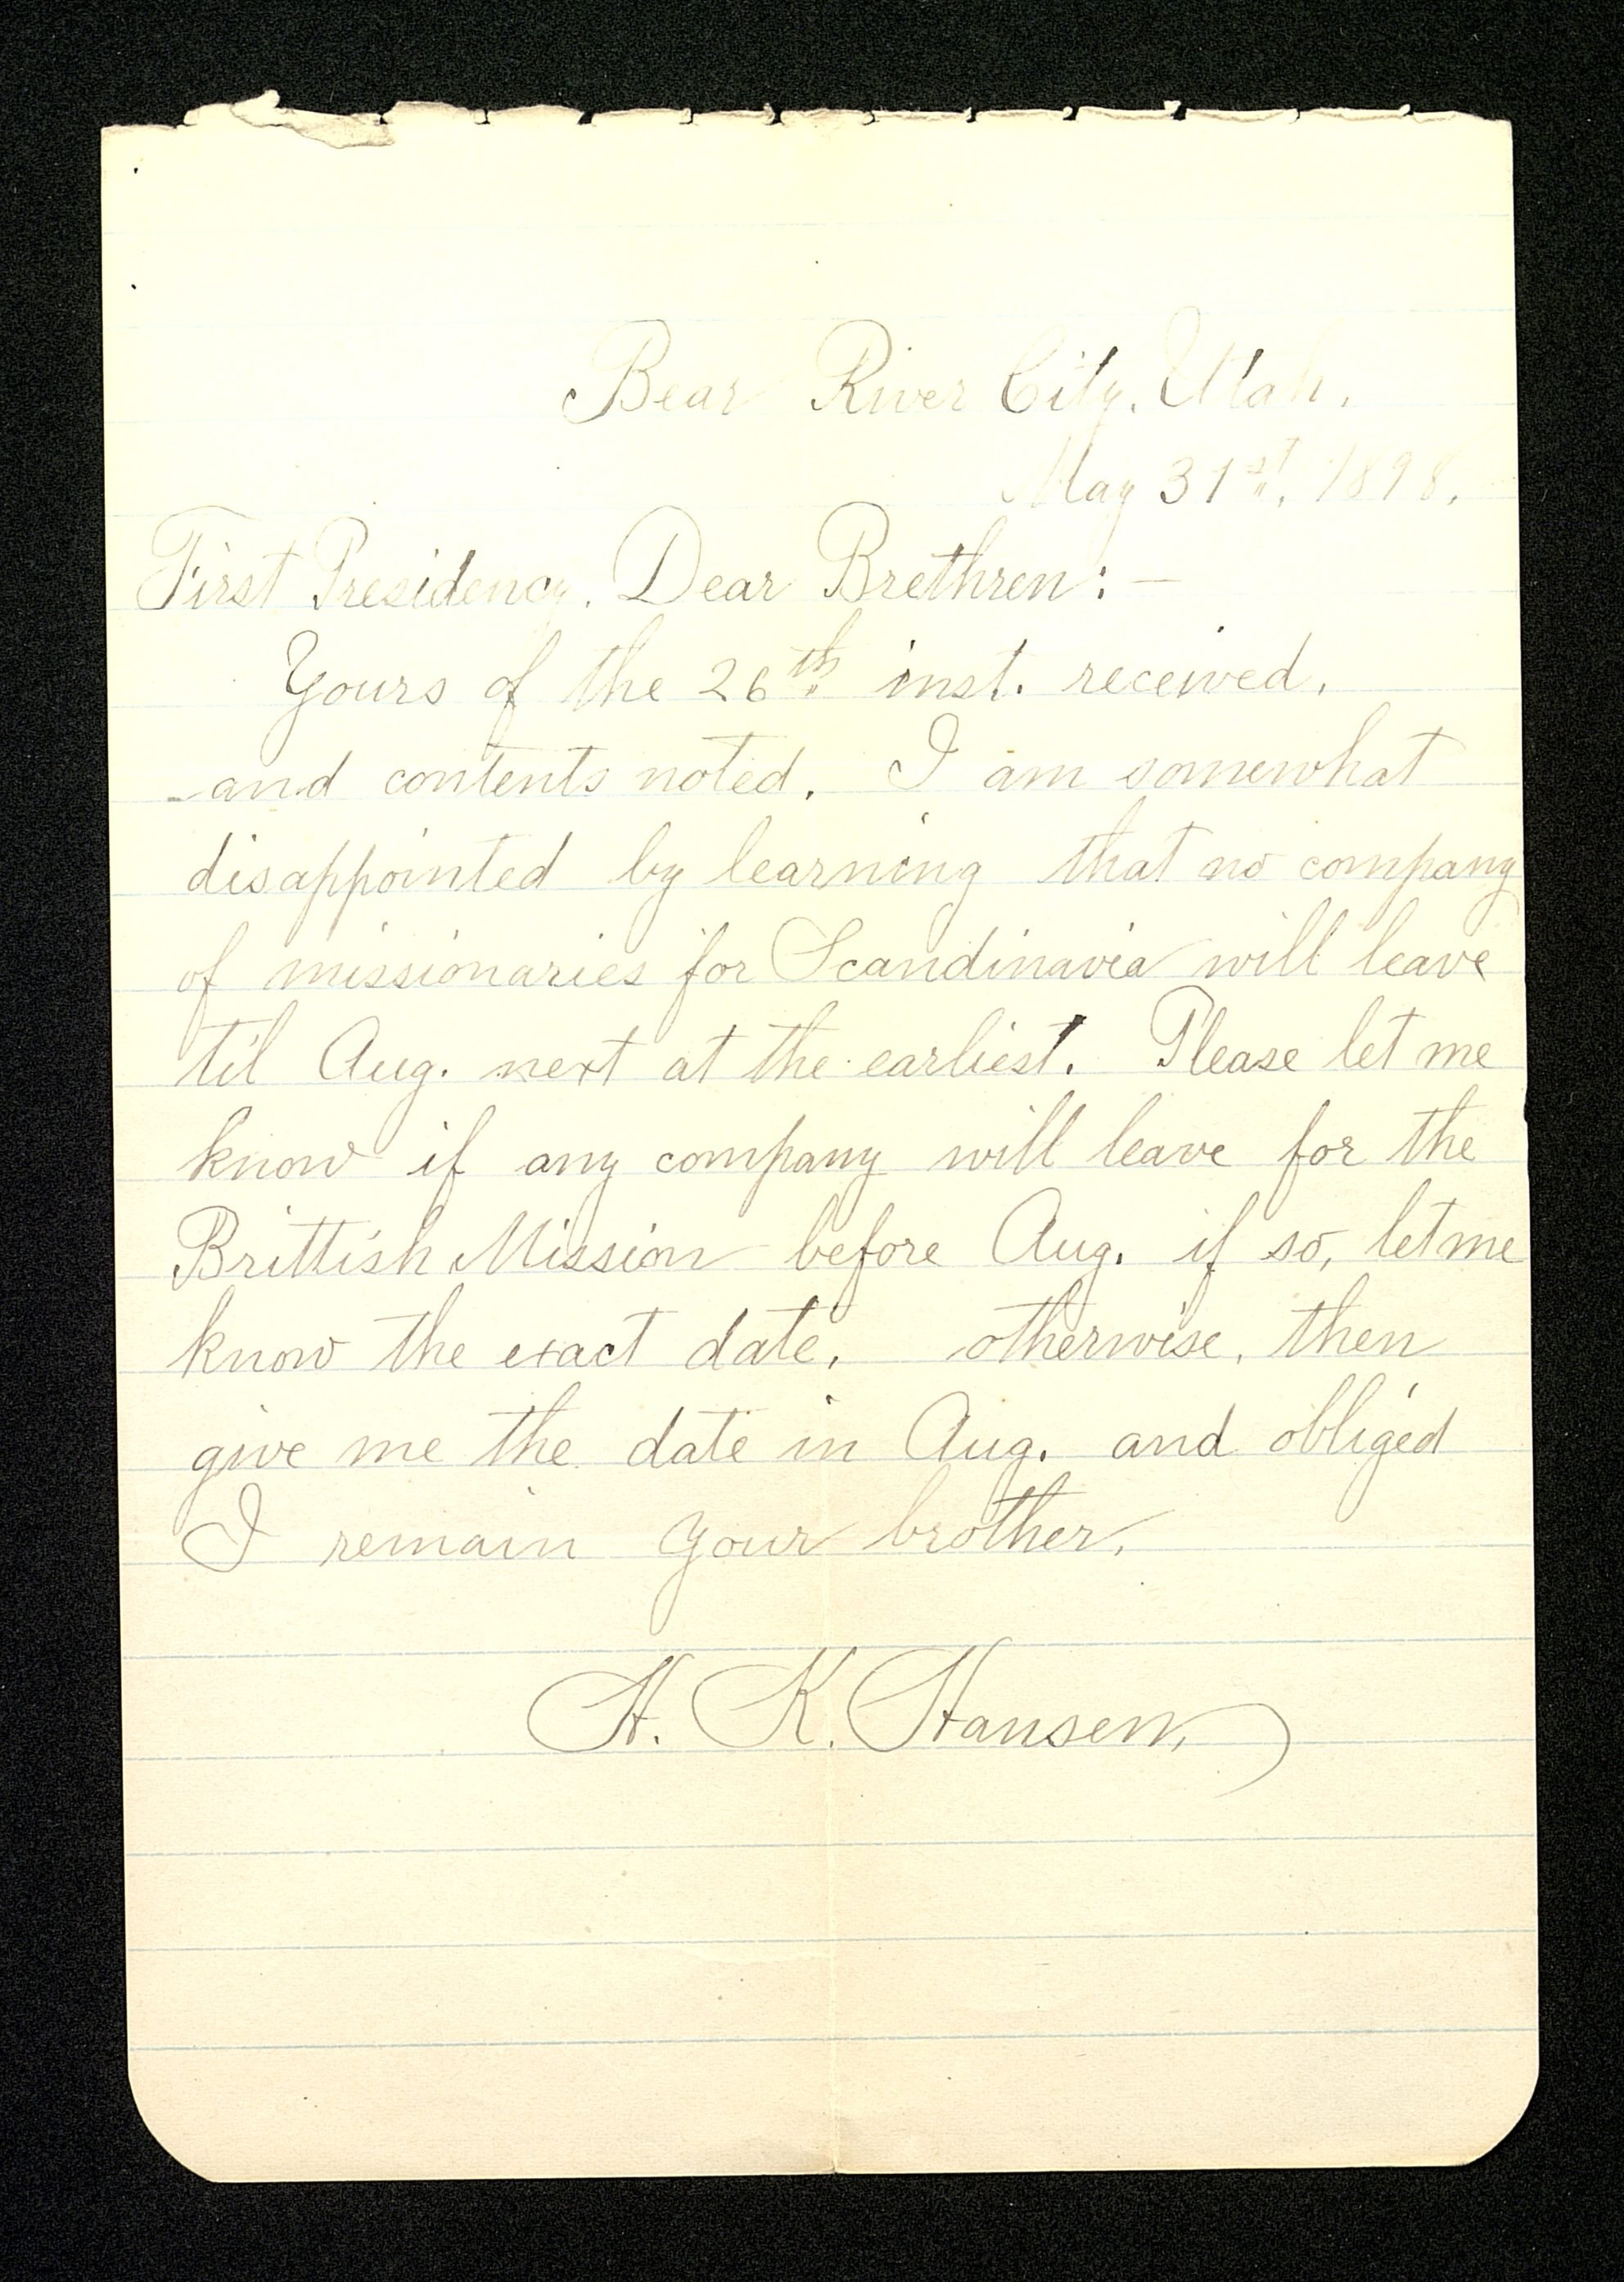 Bear River City, Utah,
May 31st, 1898.
First Presidency. Dear Brethren: —
Yours of the 26th inst. received,
and contents noted. I am somewhat
disappointed by learning that no company
of missionaries for Scandinavia will leave
til Aug. next at the earliest. Please let me
know if any company will leave for the
Brittish Mission before Aug. if so, let me
know the exact date, otherwise, then
give me the date in Aug. and obliged
I remain your brother,
H. K. Hansen,